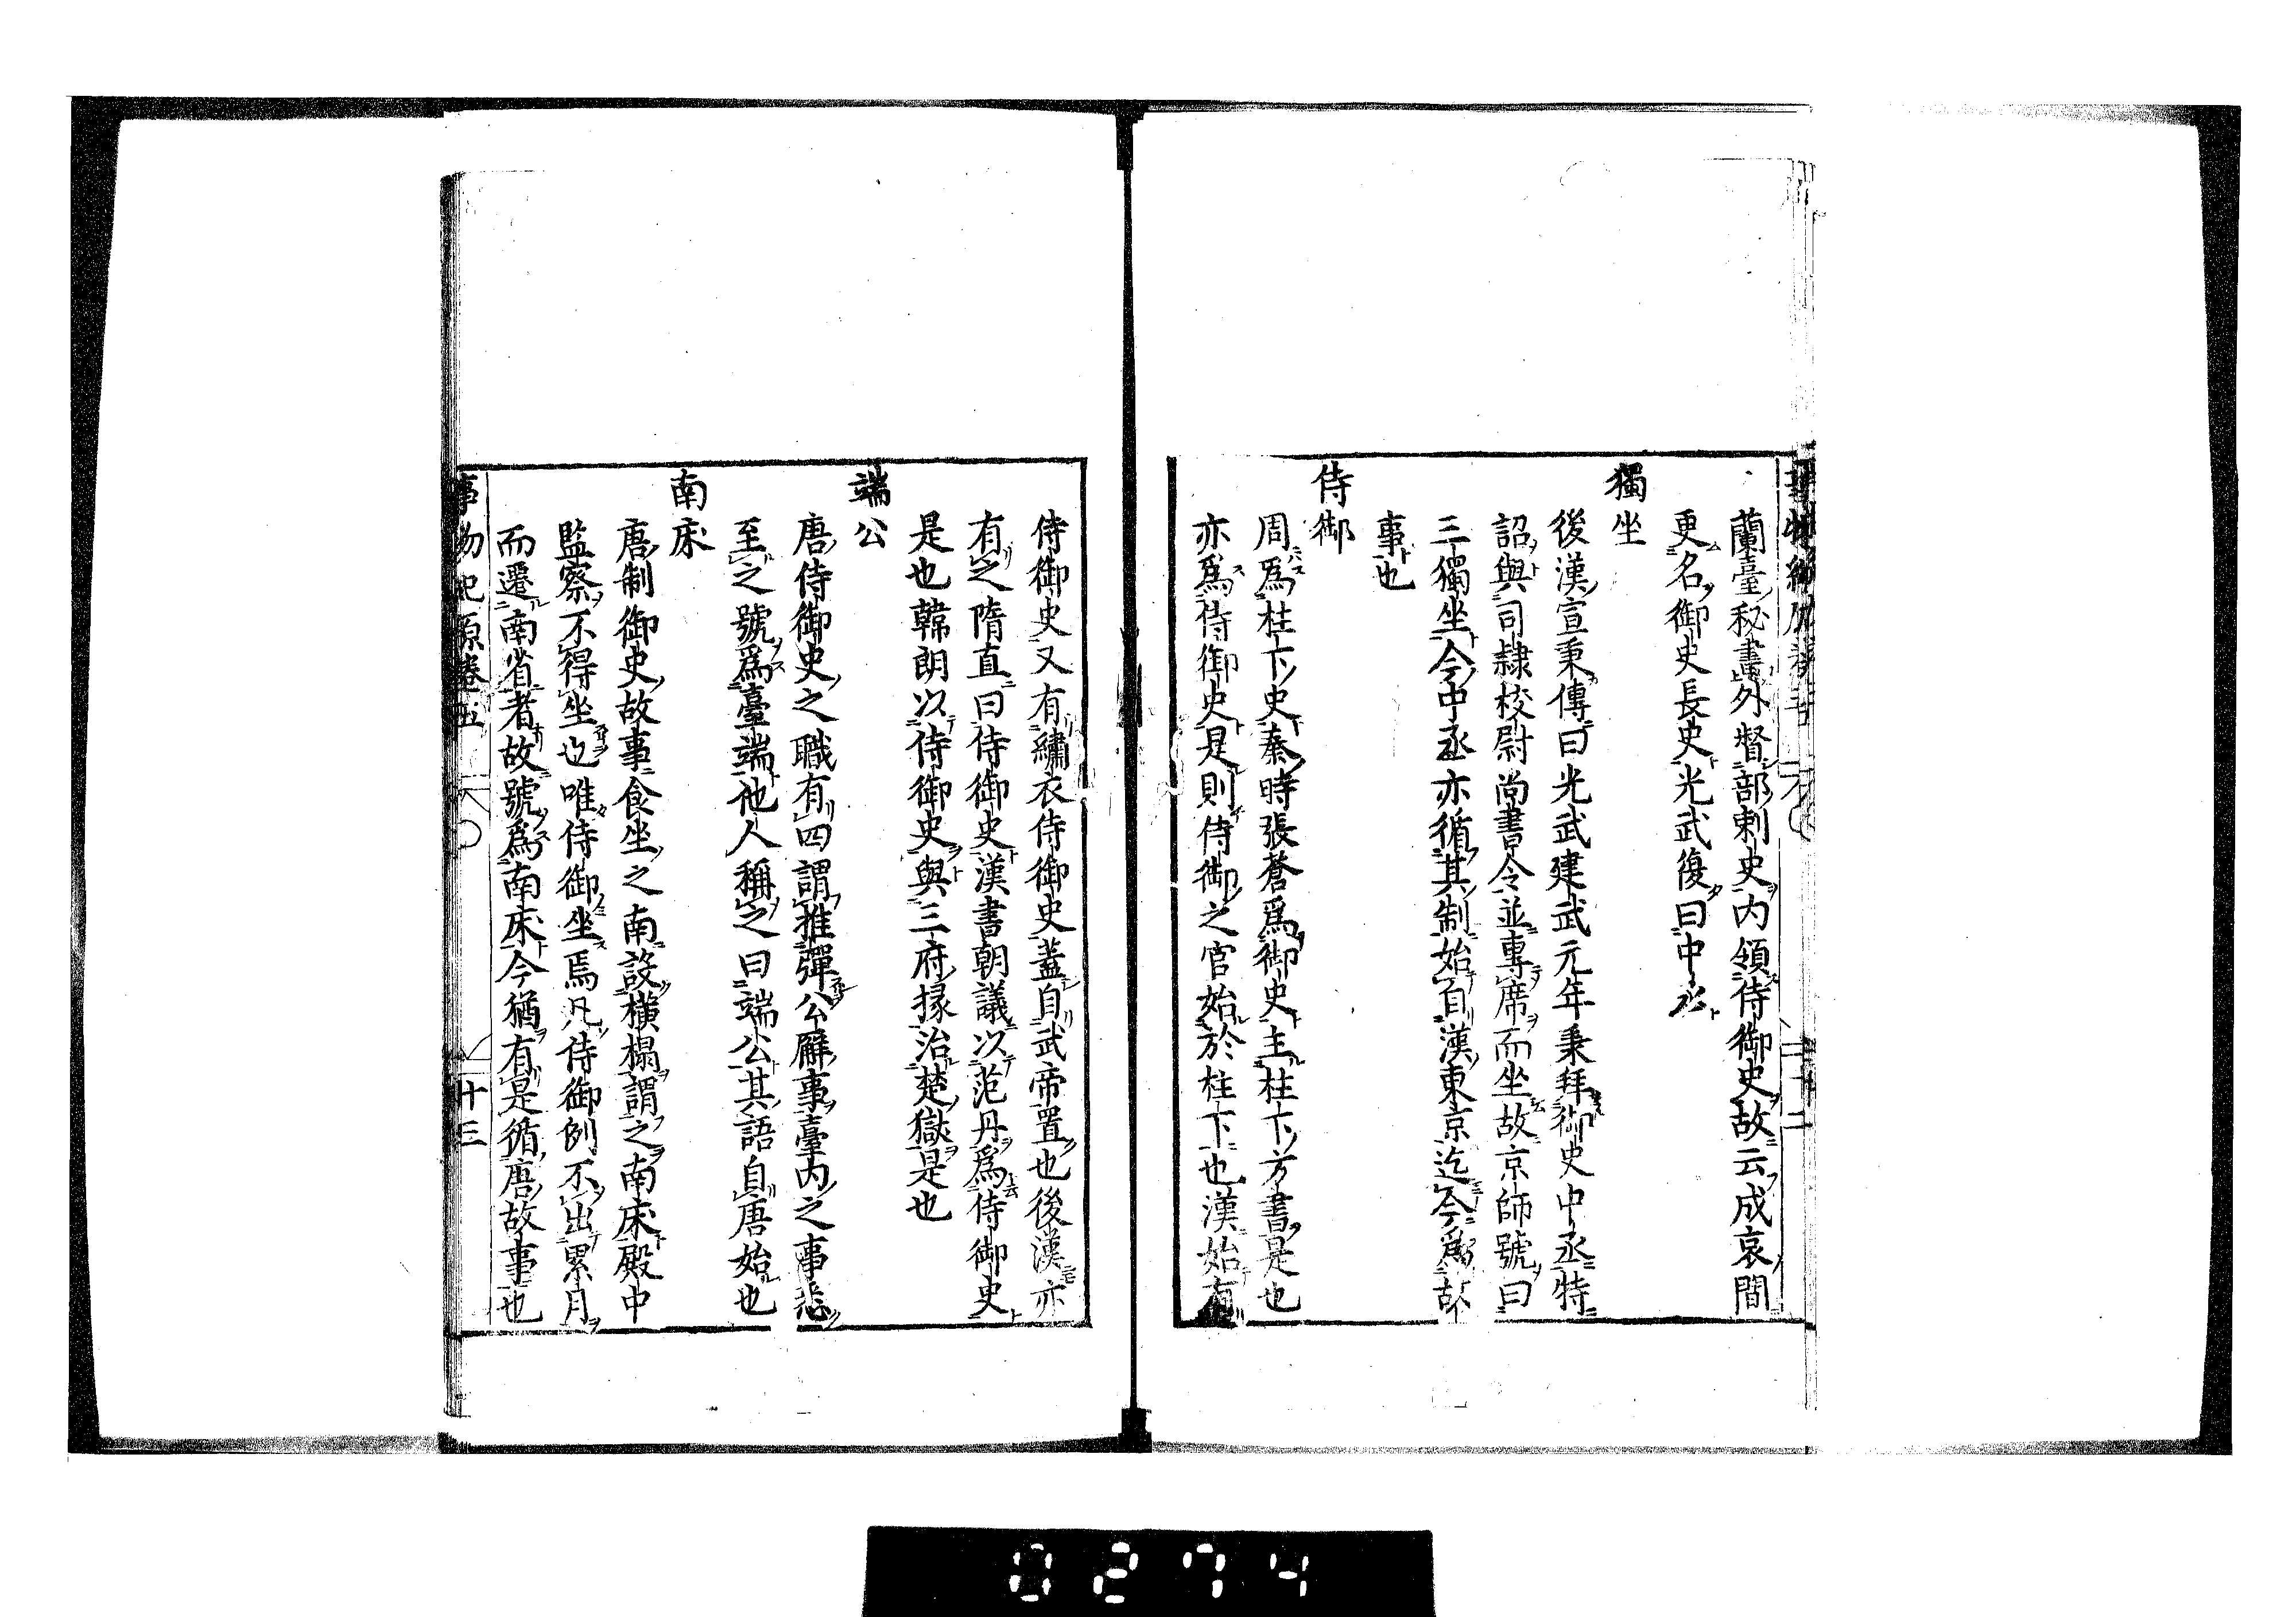 蘭臺秘書外督部刺史內領侍御史故云成哀間
更名御史長史光武復曰中丞
獨坐
後漢宣秉傳曰光武建武元年秉拜御史中丞特
詔與司隷校尉尚書令並專席而坐故京師號曰
三獨坐今中丞亦循其制始自漢東京迄今爲故
事也
侍御
周爲柱下史秦時張蒼爲御史主柱下方書是也
亦爲侍御史是則侍御之官始於柱下也漢始有
侍御史又有繡衣侍御史蓋自武帝置也後漢亦
有之隋直曰侍御史漢書朝議以范丹爲侍御史
是也韓朗以侍御史與三府掾治楚獄是也
端公
唐侍御史之職有四謂推彈公廨事臺內之事悉
至之號爲臺端他人稱之曰端公其語自唐始也
南床
唐制御史故事食坐之南設橫榻謂之南床殿中
監察不得坐也唯侍御坐焉凡侍御例不出累月
而遷南省者故號爲南床今猶有是循唐故事也
事物紀原卷五
十三
0274